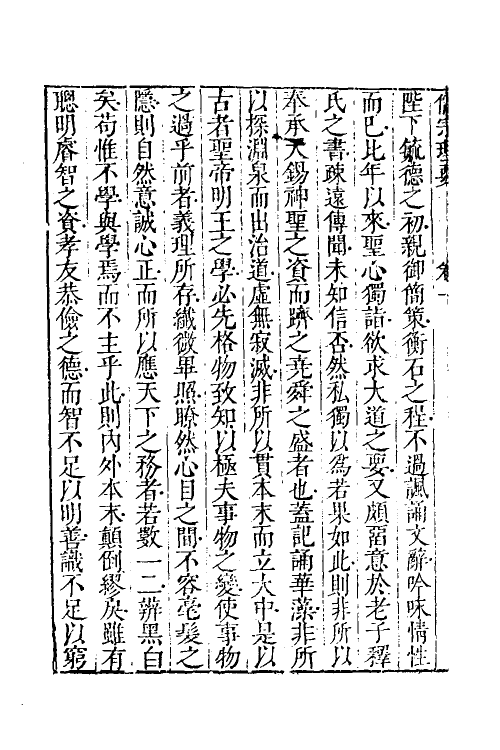 儒宗理要　卷一
陛下毓德之初親御簡策衡石之程不過諷誦文辭吟咏情性
而已比年以來聖心獨詣欲求大道之要又頗留意於老子釋
氏之書疎遠傳聞未知信否然私獨以為若果如此則非所以
奉承天錫神聖之資而躋之堯舜之盛者也蓋記誦華藻非所
以探淵泉而出治道虛無寂滅非所以貫本末而立大中是以
古者聖帝明王之學必先格物致知以極夫事物之變使事物
之過乎前者義理所存纖微畢照瞭然心目之間不容毫髮之
隱則自然意誠心正而所以應天下之務者若數一二辨黑白
矣苟惟不學與學焉而不主乎此則內外本末顛倒繆戾雖有
聰明睿智之資孝友恭儉之德而智不足以明善識不足以窮